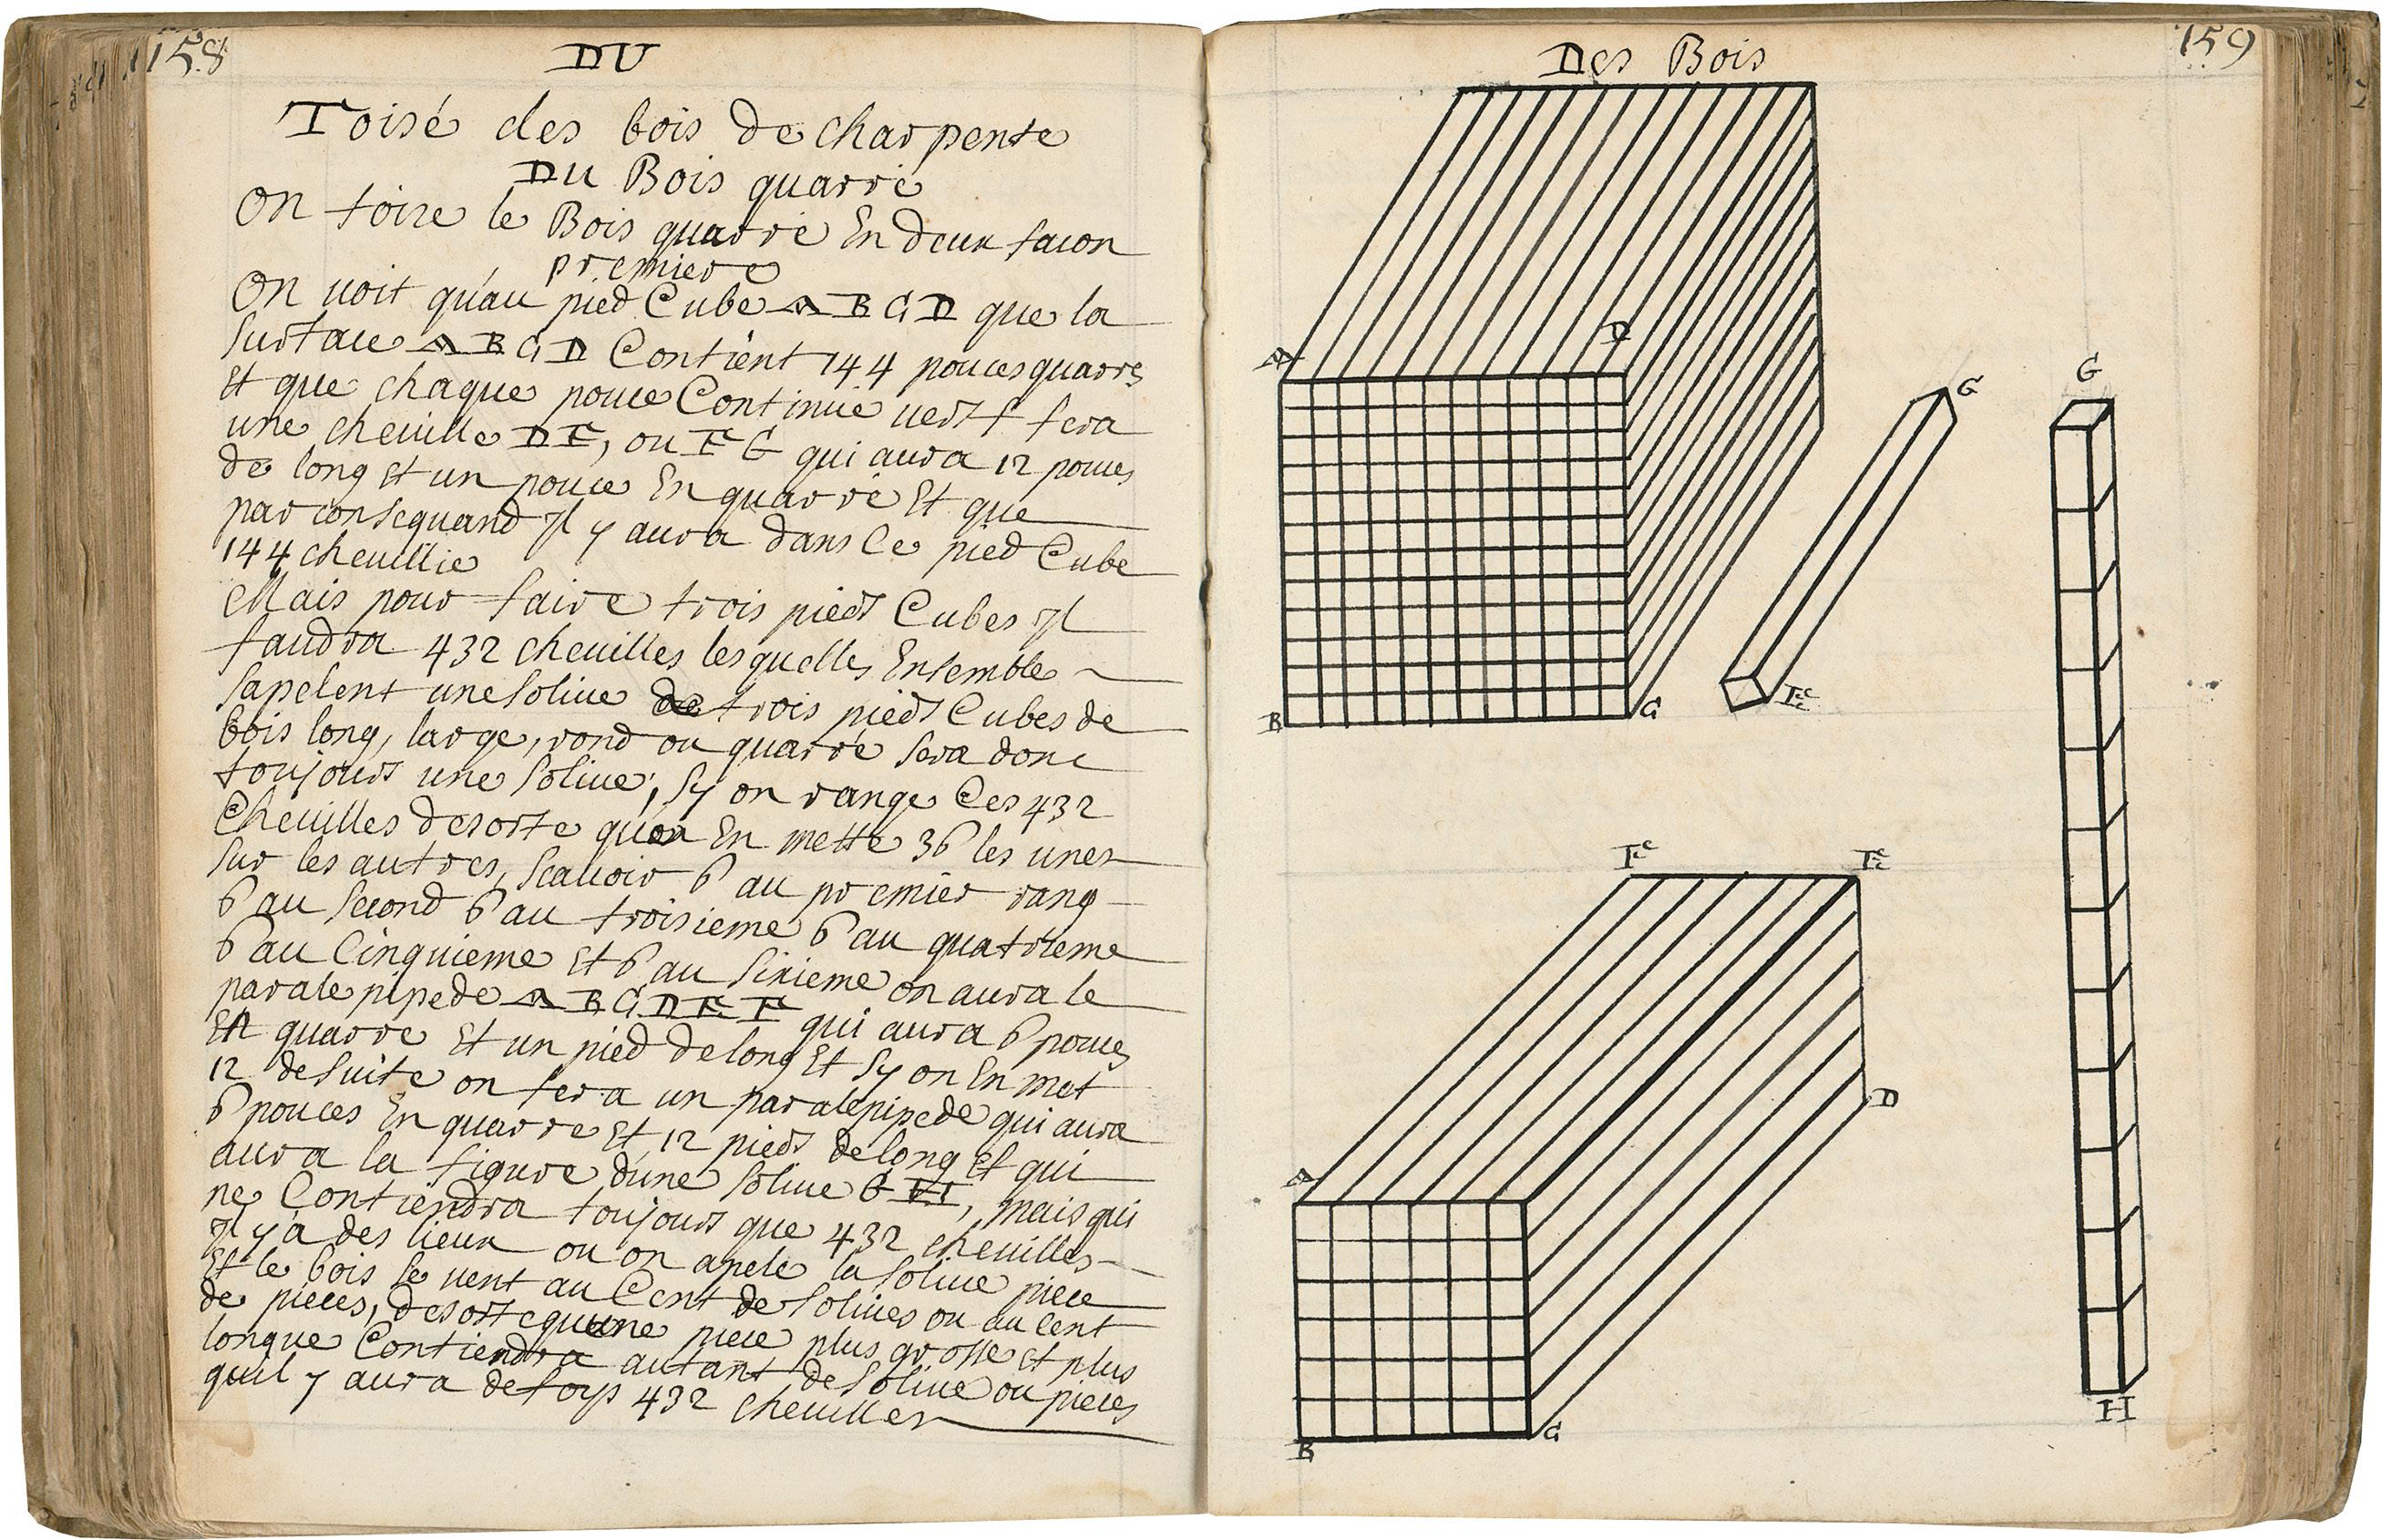 158
DU
Toisé des bois de charpente
DU Bois quarré
On toize le Bois quarré En deux facon
premiere
On uoit qu'au pied Cube A B C D que la
surface A B C D Contient 144 pouces quarrés
Et que chaque pouce Continué uers F fera
une cheuille DE, ou F G qui aura 12 pouces
de long Et un pouce En quarré Et que
par consequand Jl y aura dans Ce pied Cube
144 cheuillie
Mais pour faire trois pieds Cubes Jl
faudra 432 cheuilles lesquelles Ensemble
sapelent une soliue de trois pieds Cubes de
bois long, large, rond ou quarré sera donc
toujours une soliue, Sy on range Ces 432
Cheuilles desorte quon En mette 36 les unes
sur les autres, scauoir 6 au premier rang
6 au second 6 au troisieme 6 au quatrieme
6 au Cinquieme Et 6 au sixieme on aura le
paralepipede A B C D E F qui aura 6 pouces
En quarre Et un pied de long Et Sy on En met
12 desuite on fera un paralepipede qui aura
6 pouces En quarre Et 12 pieds delong Et qui
aura la figure d'une soliue G H, mais qui
ne Contiendra toujours que 432 cheuilles
Jl y a des lieux ou on apele la soliue piece
Et le bois se uent au Cent de soliues ou au Cent
de pieces, desorte quune piece plus grosse Et plus
longue Contiendra autant de soliue ou pieces
quil y aura de foys 432 cheuilles
159
Des Bois
A
D
B
C
G
F
G
F
E
A
D
B
C
H